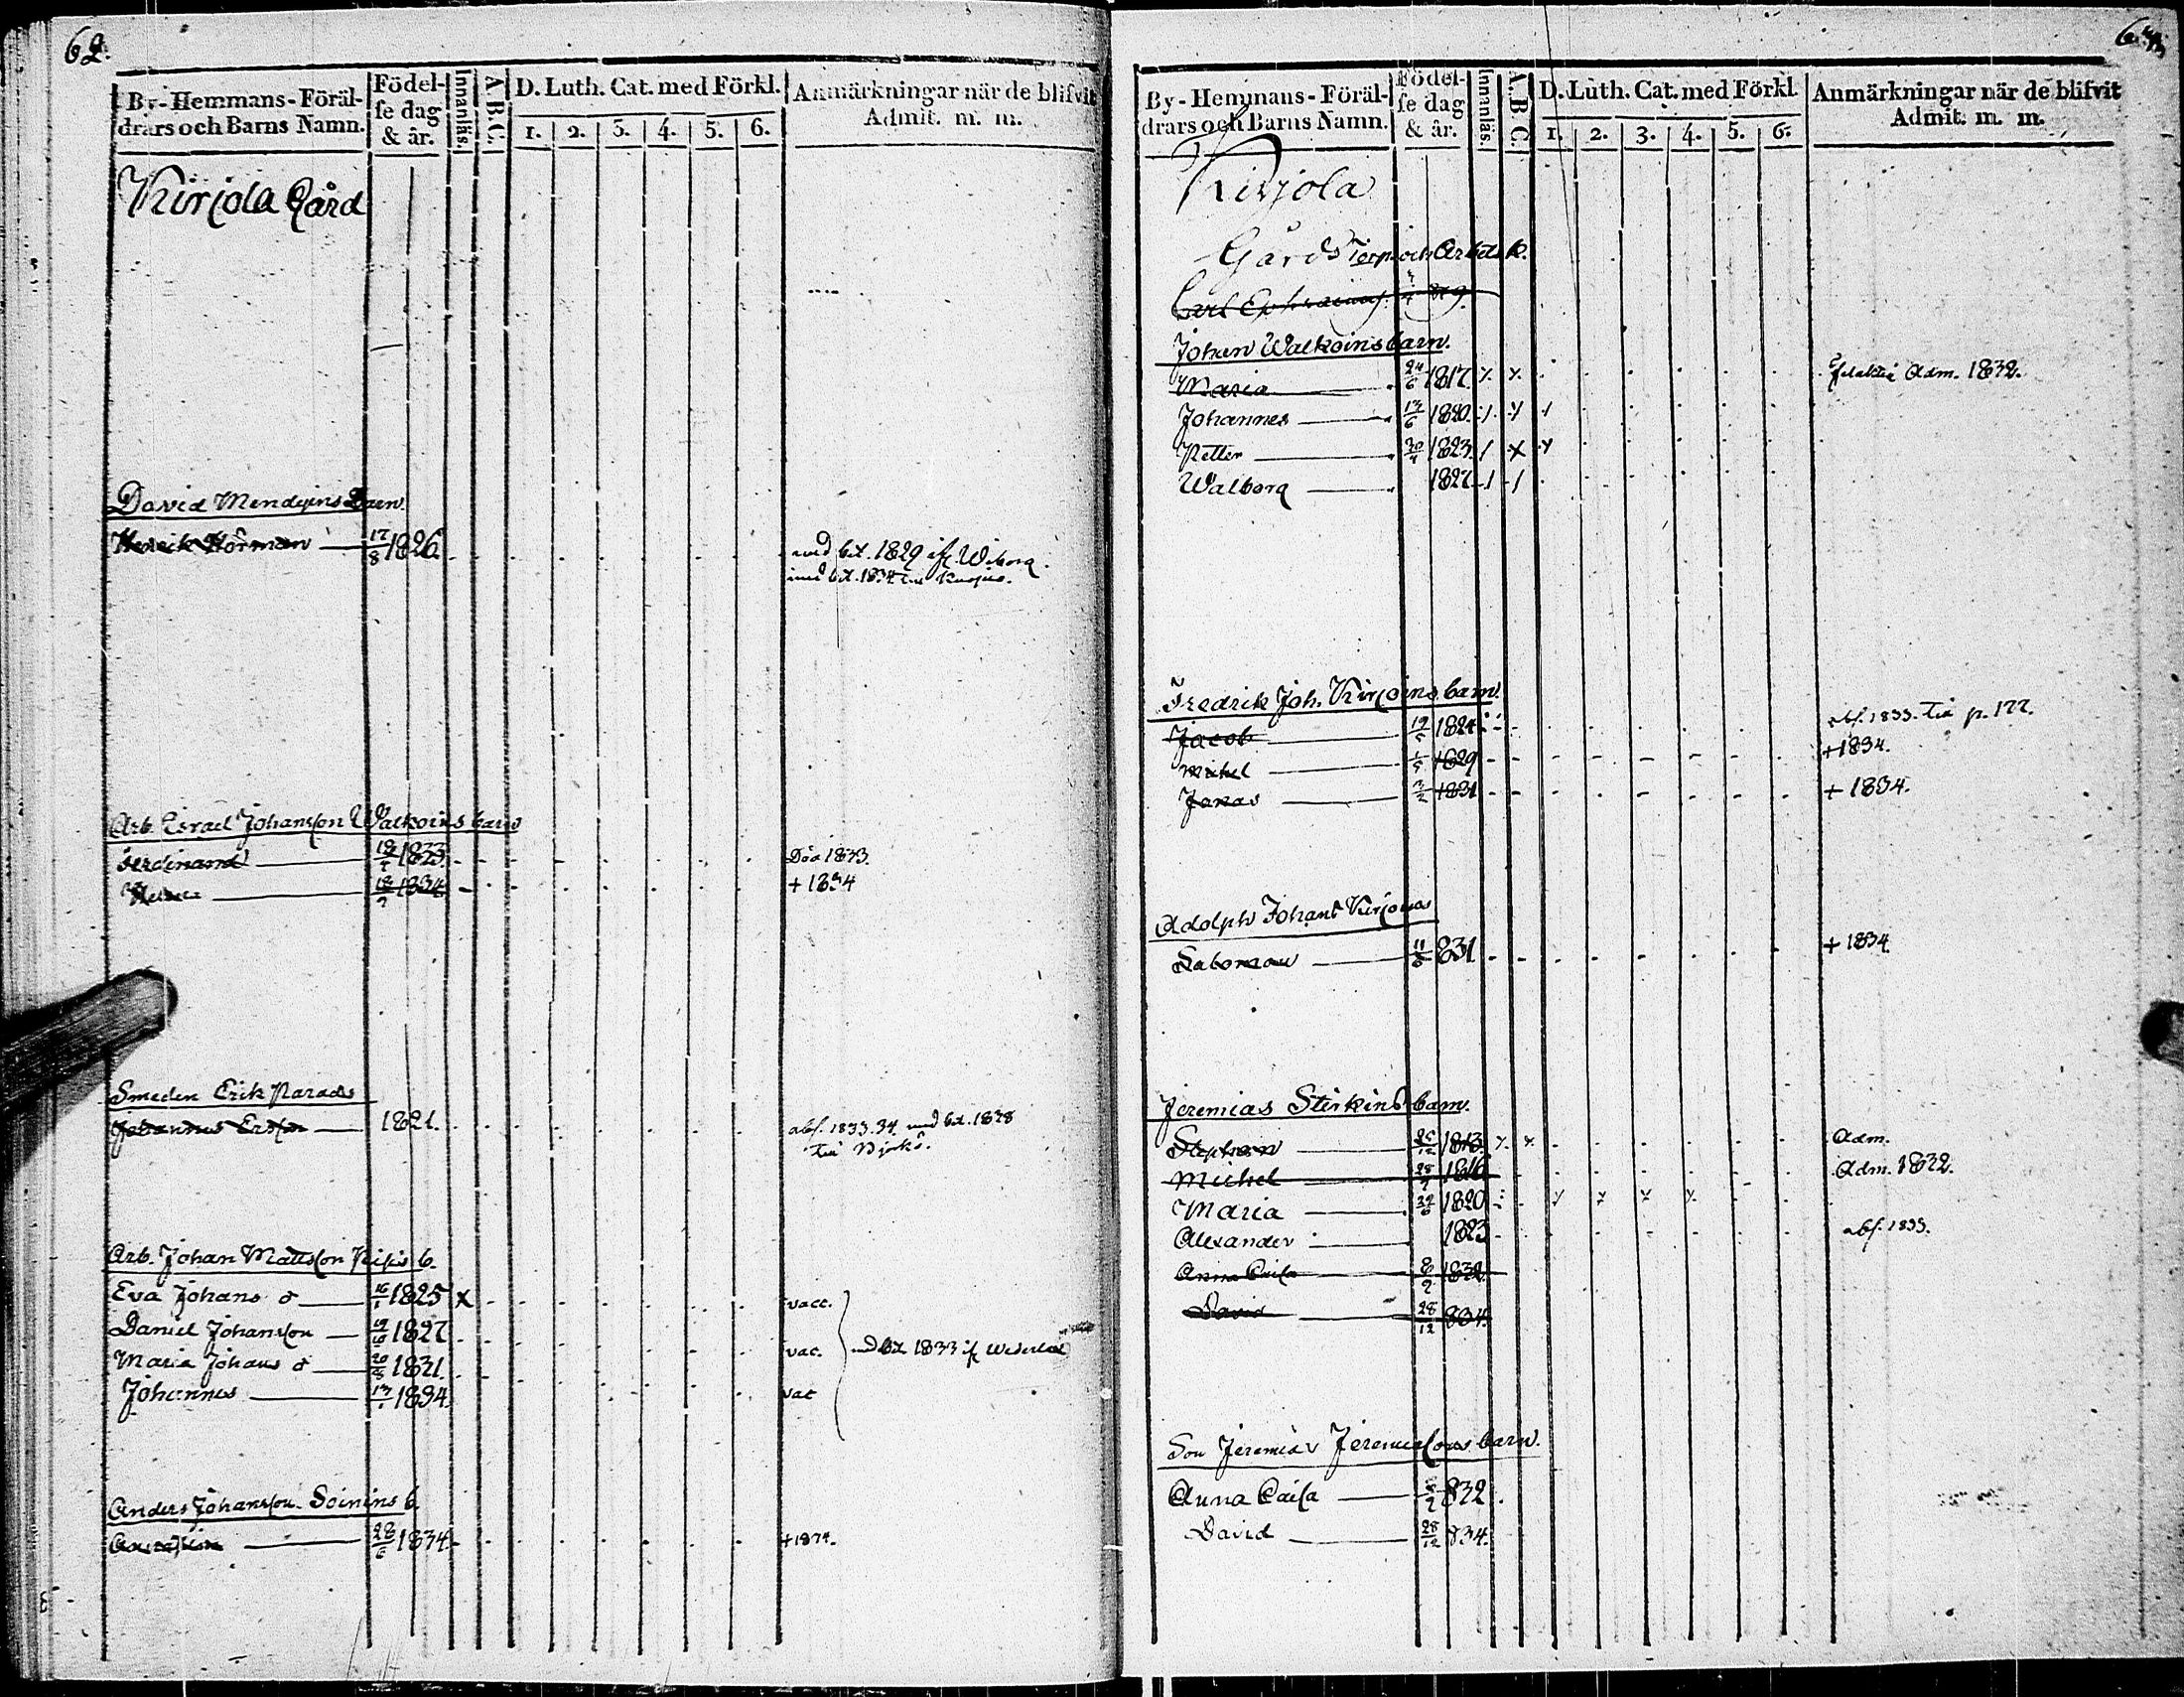 62.
By-Hemmans-Föräldrars och Barns Namn.
Födelse dag & år.
Innanläs.
A B C.
D. Luth. Cat. med Förkl.
1. 2. 3. 4. 5. 6.
Anmärkningar när de blifvit Admit. m. m.
Kirjola Gård
David Mendeyins Barn
Henrik Hörman 17/8 1826. med bet. 1829 ifr. Wiborg.
med bet. 1834
Arb. Israel Johansson Walkoins barn
Ferdinand 1833 Död 1833.
1834 + 1834
Smeden Erik Parada
Johannes Ersson 1821. abs. 1833. 34 med bet. 1838
till Björkö.
Arb. Johan Mattsson b.
Eva Johans d 16/1 1825 x vacc.
Daniel Johansson 1827 vac. med bet. 1833 if
Maria Johans d 20/5 1831
Johannes 1834 vac
Anders Johansson Soinins b.
28/6 1834 + 1834.
By-Hemmans-Föräldrars och Barns Namn.
Födelse dag & år.
Innanläs.
A. B. C.
D. Luth. Cat. med Förkl.
1. 2. 3. 4. 5. 6.
Anmärkningar när de blifvit Admit. m. m.
Kirjola
Gårds Torp och Arbets k.
Carl Ephraims
Johan Walkoins barn.
Maria 24/6 1817 Adm. 1832.
Johannes 13/6 1820.
Petter 1823.
Walborg 1827
Fredrik Joh. Kirjoins barn.
Jacob 1824 abf. 1833. till p. 177.
Michel 1829 + 1834.
Jonas 1831 + 1834.
Adolph Johans Kirjoins
Salomon 831 + 1834
Jeremias Sterkins barn.
Stephan 1813 Adm.
Michel 1816 Adm. 1832.
Maria 1820
Alexander 1823 abf. 1833.
Anna Caisa 8/2 1832
David 28/12 834.
Son Jeremias Jeremiæsons barn.
Anna Caisa 832
David 28/12 834.